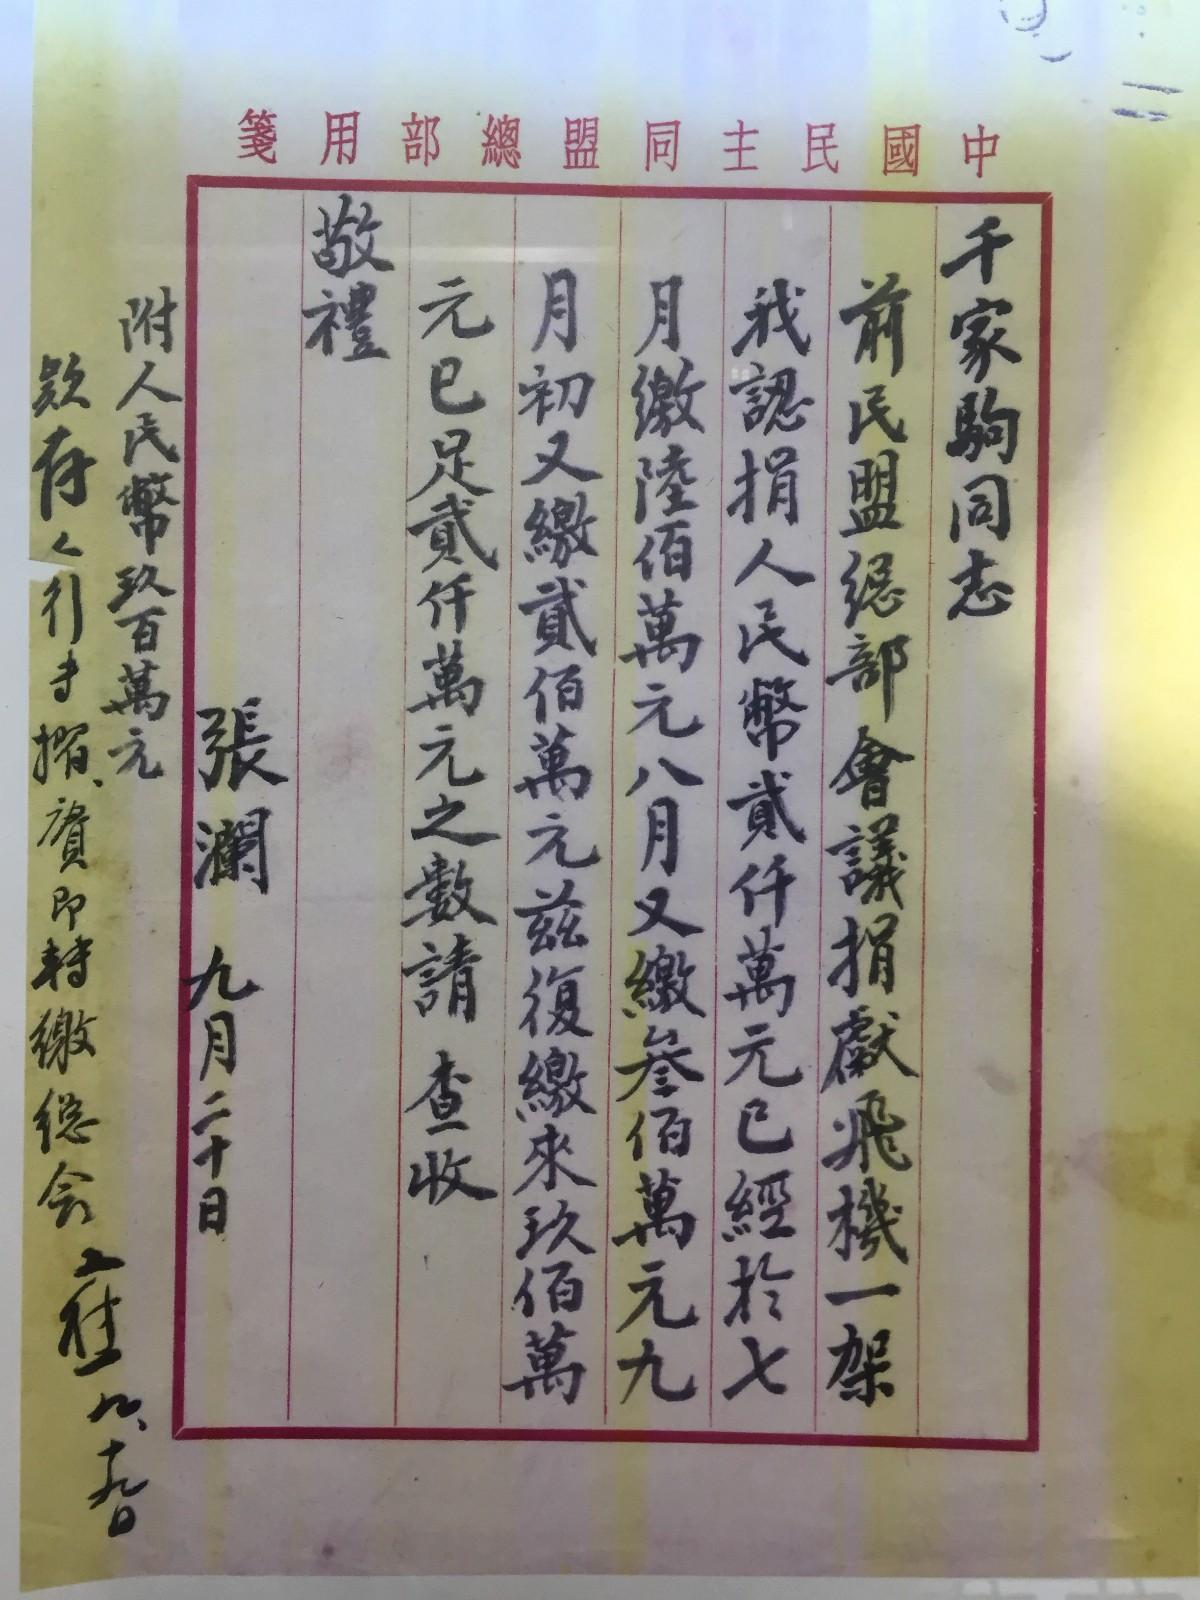 中國民主同盟總部用箋
千家駒同志
前民盟總部會議捐獻飛機一架
我認捐人民幣貳仟萬元已經於七
月繳陸佰萬元八月又繳叁佰萬元九
月初又繳貳佰萬元茲復繳來玖佰萬
元已足貳仟萬元之數請 查收
敬禮
張瀾 九月二十日
附人民幣玖百萬元
款存人行專摺、賡即轉繳總會